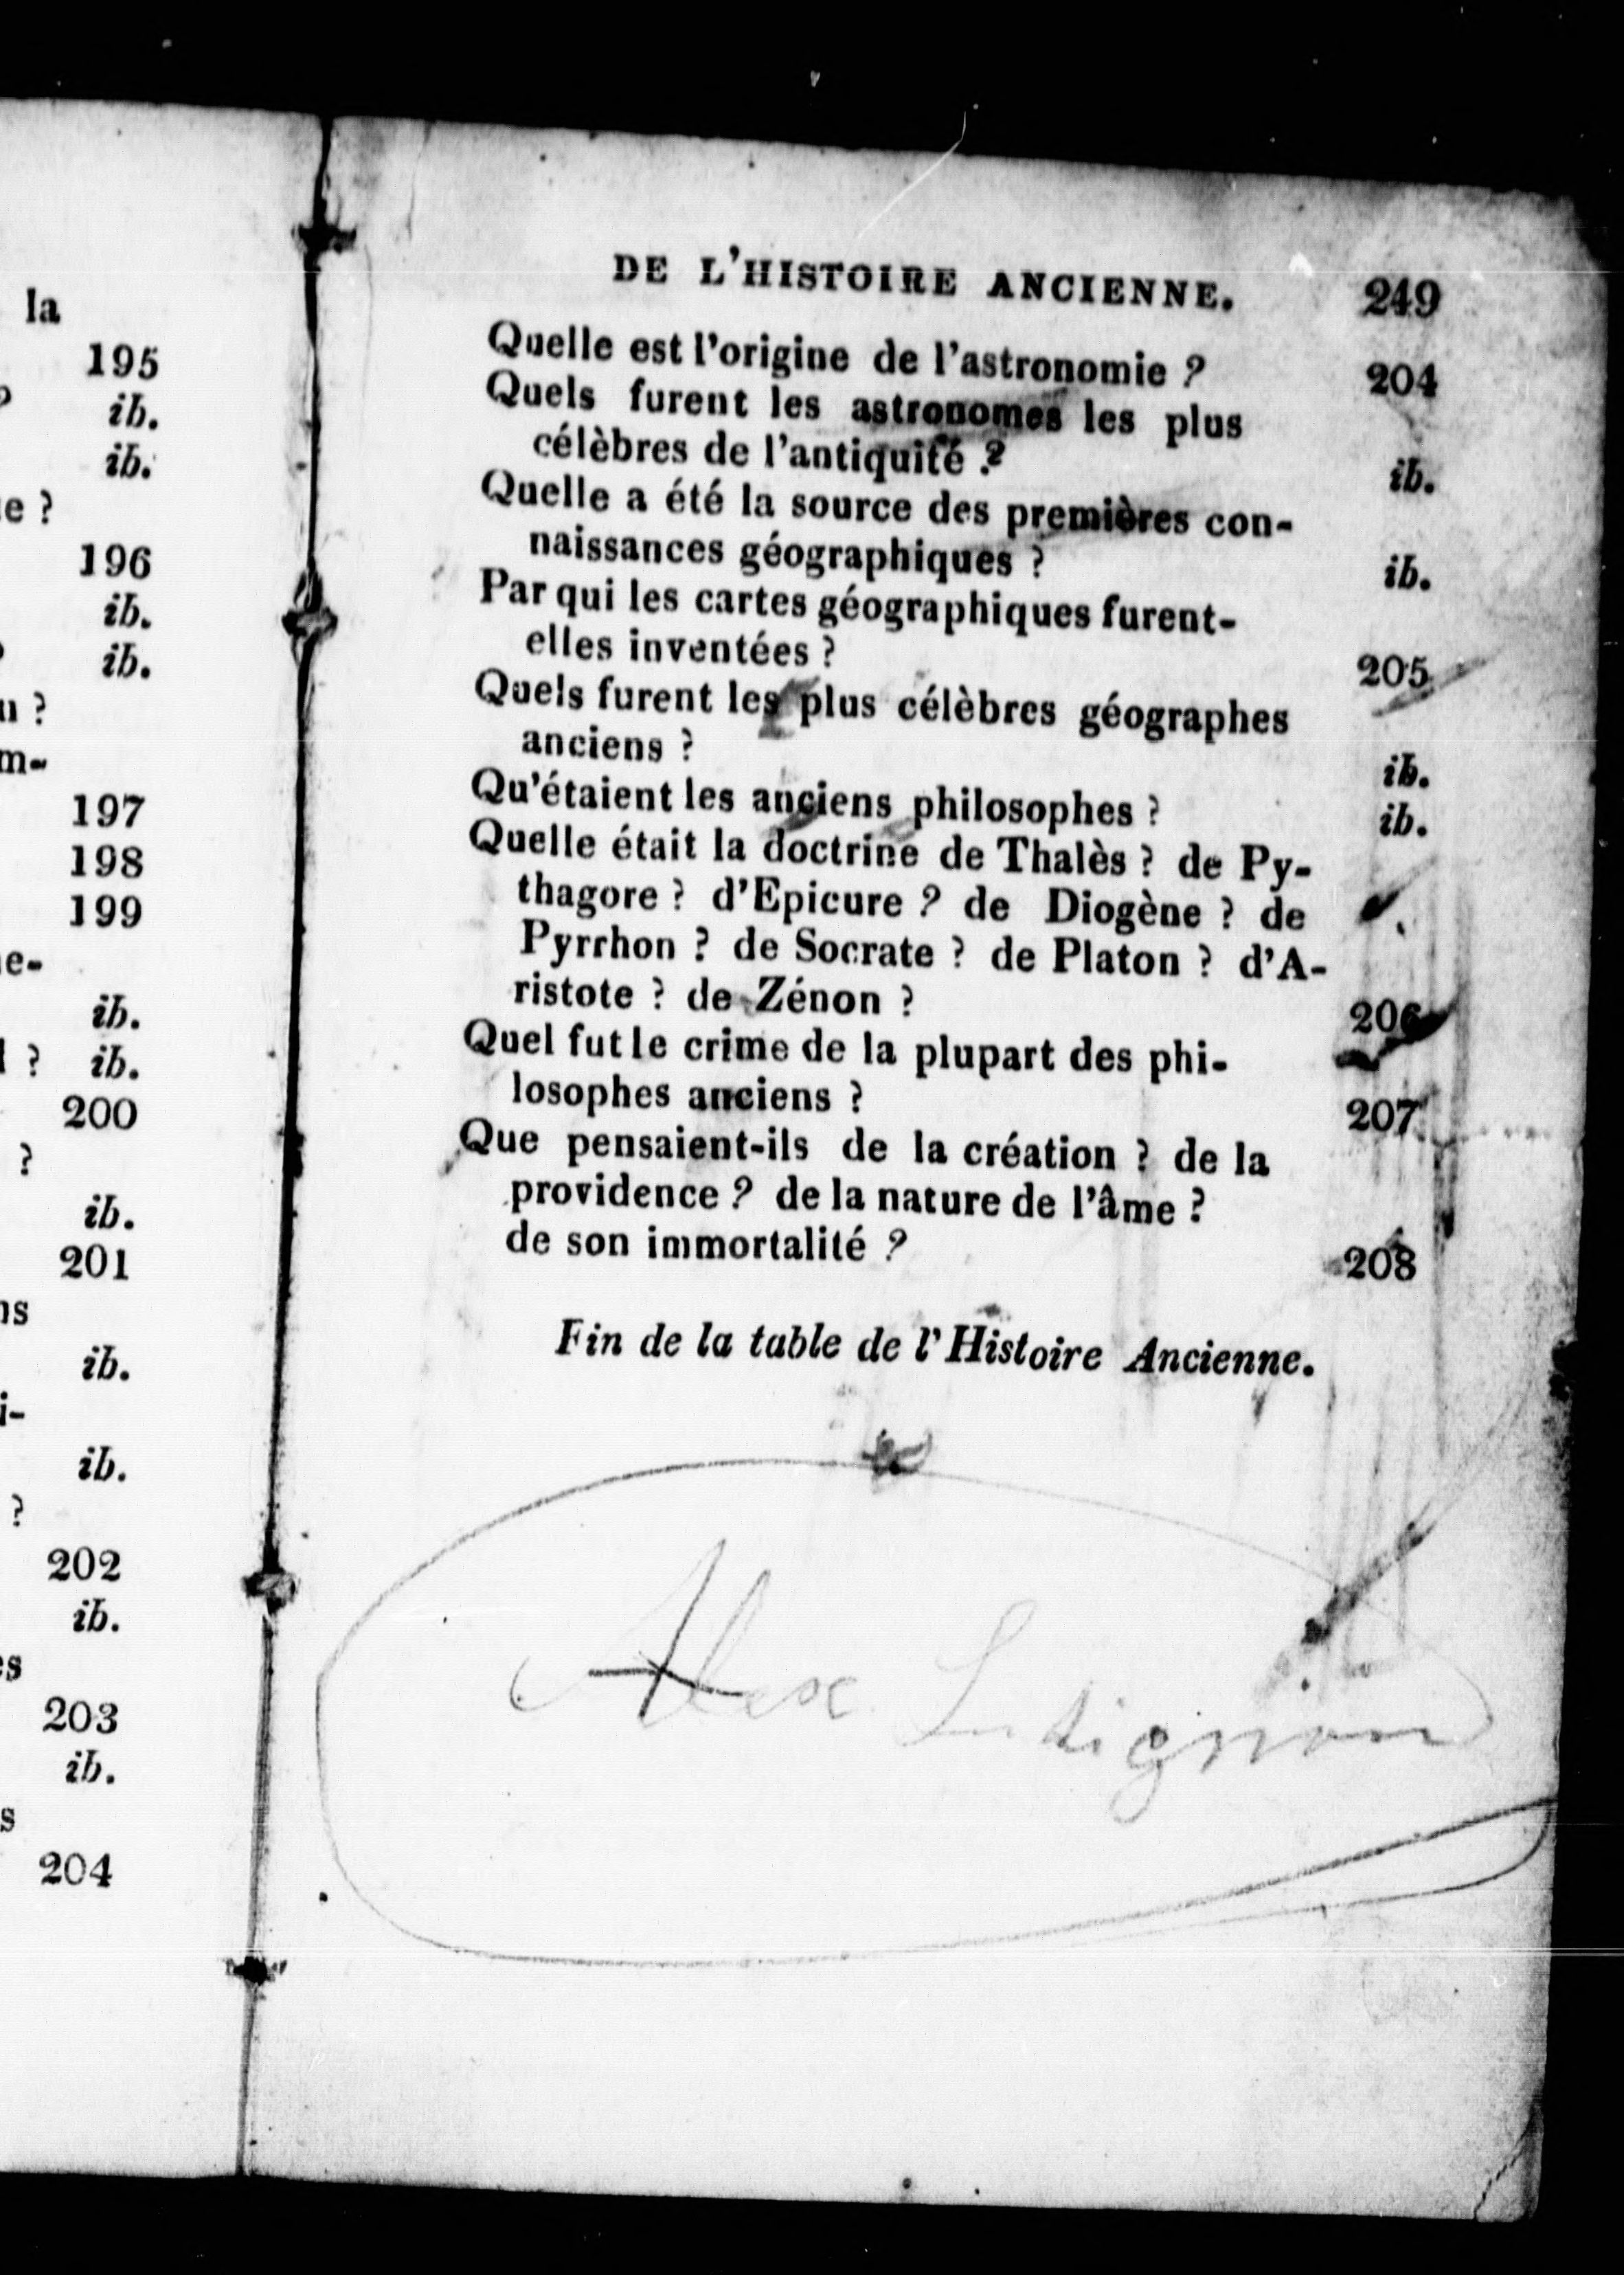 la
195
ib.
ib.
e ?
196
ib.
ib.
u ?
m-
197
198
199
e-
ib.
? ib.
200
?
ib.
201
ns
ib.
i-
ib.
?
202
ib.
es
203
ib.
s
204
DE L'HISTOIRE ANCIENNE. 249
Quelle est l'origine de l'astronomie ? 204
Quels furent les astronomes les plus
célèbres de l'antiquité ? ib.
Quelle a été la source des premières con-
naissances géographiques ? ib.
Par qui les cartes géographiques furent-
elles inventées ? 205
Quels furent les plus célèbres géographes
anciens ? ib.
Qu'étaient les anciens philosophes ? ib.
Quelle était la doctrine de Thalès ? de Py-
thagore ? d'Epicure ? de Diogène ? de
Pyrrhon ? de Socrate ? de Platon ? d'A-
ristote ? de Zénon ? 206
Quel fut le crime de la plupart des phi-
losophes anciens ? 207
Que pensaient-ils de la création ? de la
providence ? de la nature de l'âme ?
de son immortalité ? 208
Fin de la table de l'Histoire Ancienne.
Alex